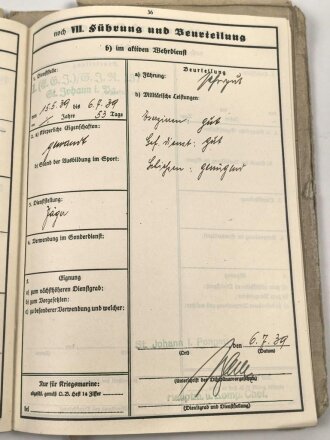 36
noch VII. Führung und Beurteilung
b) im aktiven Wehrdienst
1. Dienststelle:
St. Johann i. Pg.
von 15.5.39 bis 6.7.39
Jahre 53 Tage
2. a) Körperliche Eigenschaften:
gewandt
b) Stand der Ausbildung im Sport:
3. Dienststellung:
Jäger
4. Verwendung im Sonderdienst:
5. Eignung
a) zum nächsthöheren Dienstgrad:
b) zum Vorgesetzten:
c) zu besonderer Verwendung und welcher:
Nur für Kriegsmarine:
abgeld. gemäß D.B. Heft 14 Ziffer
bei
Beurteilung
a) Führung: sehr gut
b) Militärische Leistungen:
Exerzieren: gut
Gef. Dienst: gut
Schießen: genügend
St. Johann i. Pongau, den 6.7.39
(Ort) (Datum)
(Unterschrift des Disziplinarvorgesetzten)
Hauptm. u. Komp. Chef.
(Dienstgrad und Dienststellung)